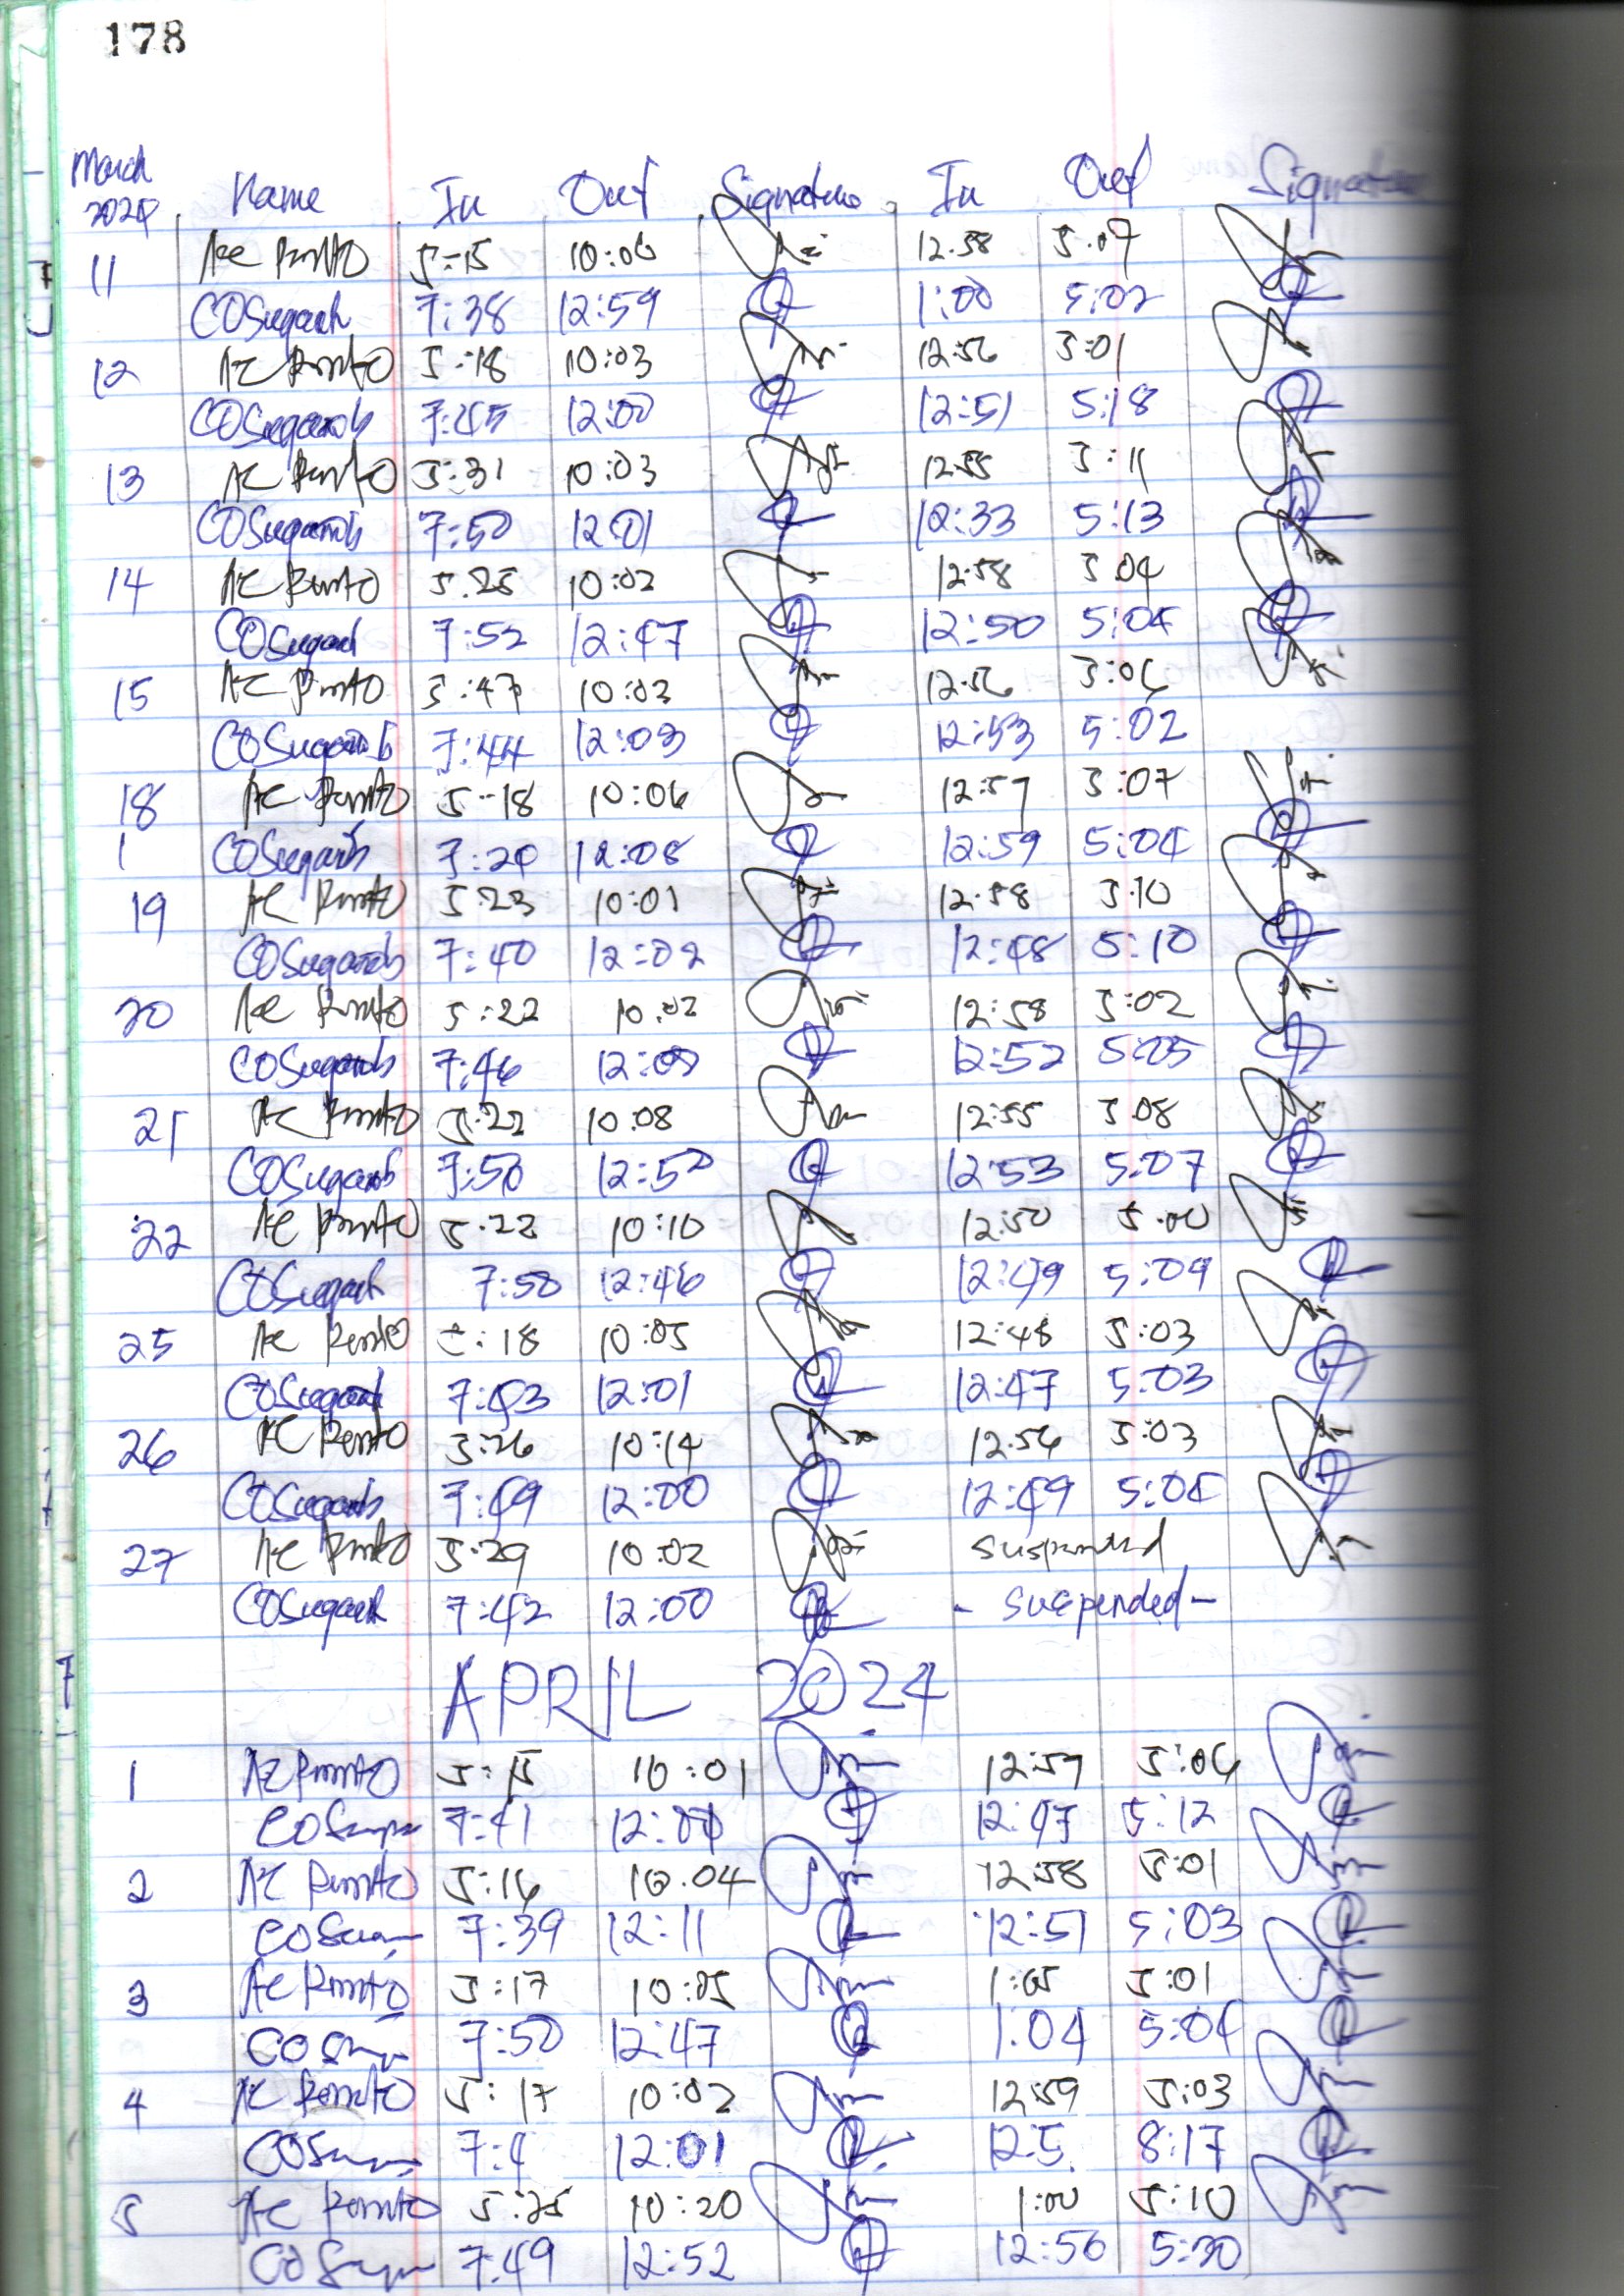 178
March 2024 Name In Out Signature In Out Signature
11 AC Pinto 5:15 10:06 12:58 5:07
COSugarol 7:38 12:59 1:00 5:02
12 AC Pinto 5:18 10:03 12:56 5:01
COSugarol 7:45 12:00 12:51 5:18
13 AC Pinto 5:31 10:03 12:55 5:11
COSugarol 7:50 12:01 12:33 5:13
14 AC Pinto 5:25 10:02 12:58 5:04
COSugarol 7:52 12:47 12:50 5:04
15 AC Pinto 5:47 10:03 12:56 5:06
COSugarol 7:44 12:03 12:53 5:02
18 AC Pinto 5:18 10:06 12:57 5:07
COSugarol 12:08 12:59 5:04
19 AC Pinto 5:23 10:01 12:58 5:10
COSugarol 7:40 12:02 12:48 5:10
20 AC Pinto 5:22 10:02 12:58 5:02
COSugarol 7:46 12:52 5:05
21 AC Pinto 5:22 10:08 12:55 5:08
COSugarol 7:50 12:50 12:53 5:07
22 AC Pinto 5:28 10:10 12:50 5:00
COSugarol 7:50 12:46 12:49 5:09
25 AC Pinto 5:18 10:05 12:48 5:03
COSugarol 7:43 12:01 12:47 5:03
26 AC Pinto 5:26 10:14 12:56 5:03
COSugarol 7:49 12:00 12:49 5:04
27 AC Pinto 5:29 10:02 suspended
COSugarol 7:42 12:00 - suspended -
APRIL 2024
1 AC Pinto 5:15 10:01 12:57 5:06
7:41 12:47 5:12
2 AC Pinto 5:16 10:04 12:58 5:01
7:39 12:11 12:51 5:03
3 AC Pinto 5:17 10:05 1:05 5:01
7:50 12:47 1:04 5:04
4 AC Pinto 5:17 10:02 12:59 5:03
7:4 12:01 12:5 8:17
5 AC Pinto 5:25 10:20 1:00 5:10
7:49 12:52 12:56 5:30